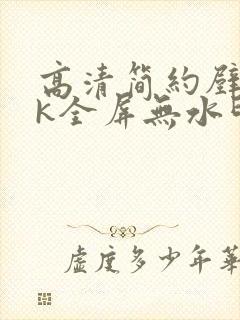 高清简約壁
K全屏無水印
虛度多少年華